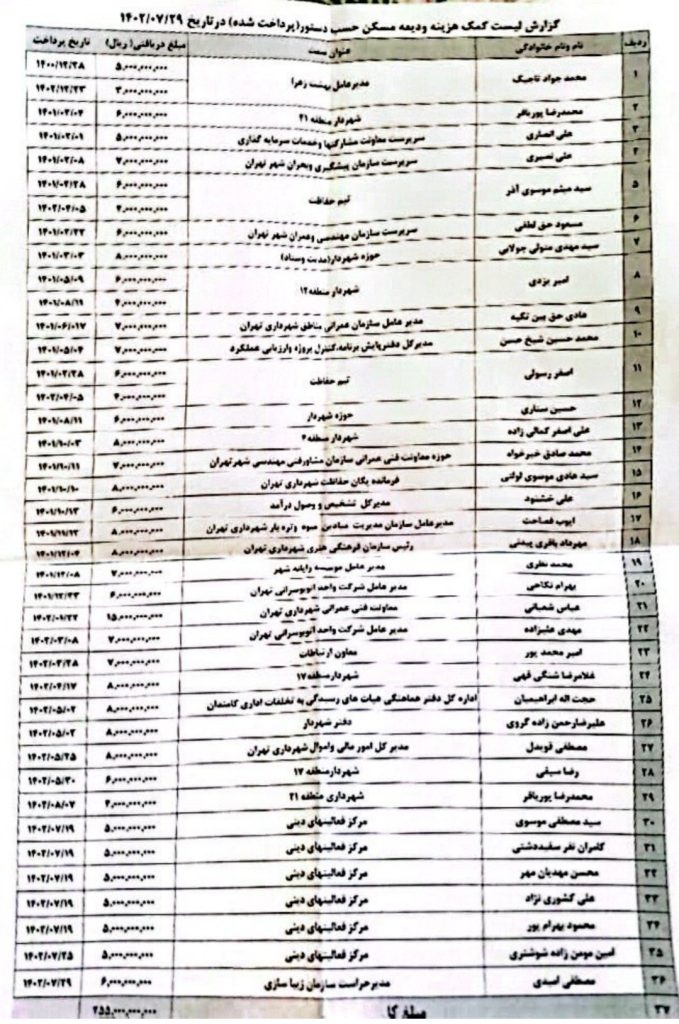 گزارش لیست کمک هزینه ودیعه مسکن حسب دستور(پرداخت شده) درتاریخ ۱۴۰۲/۰۷/۲۹
ردیف نام ونام خانوادگی عنوان سمت مبلغ دریافتی( ریال) تاریخ پرداخت
۱ محمد جواد تاجیک مدیرعامل بهشت زهرا ۵,۰۰۰,۰۰۰,۰۰۰ ۱۴۰۰/۱۲/۲۸
۳,۰۰۰,۰۰۰,۰۰۰ ۱۴۰۲/۱۲/۲۳
۲ محمدرضا پورباقر شهردار منطقه ۲۱ ۶,۰۰۰,۰۰۰,۰۰۰ ۱۴۰۱/۰۲/۰۴
۳ علی انصاری سرپرست معاونت مشارکتها وخدمات سرمایه گذاری ۵,۰۰۰,۰۰۰,۰۰۰ ۱۴۰۱/۰۲/۰۱
۴ علی نصیری سرپرست سازمان پیشگیری وبحران شهر تهران ۷,۰۰۰,۰۰۰,۰۰۰ ۱۴۰۱/۰۲/۰۸
۵ سید میثم موسوی آذر تیم حفاظت ۶,۰۰۰,۰۰۰,۰۰۰ ۱۴۰۱/۰۲/۲۸
۴,۰۰۰,۰۰۰,۰۰۰ ۱۴۰۲/۰۴/۰۵
۶ مسعود حق لطفی سرپرست سازمان مهندسی وعمران شهر تهران ۶,۰۰۰,۰۰۰,۰۰۰ ۱۴۰۱/۰۲/۲۲
۷ سید مهدی متولی جولایی حوزه شهردار ۸,۰۰۰,۰۰۰,۰۰۰ ۱۴۰۱/۰۳/۰۳
۸ امیر یزدی شهردار منطقه۱۲ ۶,۰۰۰,۰۰۰,۰۰۰ ۱۴۰۱/۰۵/۰۹
۴,۰۰۰,۰۰۰,۰۰۰ ۱۴۰۱/۰۸/۱۱
۹ هادی حق بین تکیه مدیر عامل سازمان عمرانی مناطق شهرداری تهران ۷,۰۰۰,۰۰۰,۰۰۰ ۱۴۰۱/۰۶/۰۱۷
۱۰ محمد حسین شیخ حسن مدیرکل دفترپایش برنامه،کنترل پروژه وارزیابی عملکرد ۷,۰۰۰,۰۰۰,۰۰۰ ۱۴۰۱/۰۵/۰۴
۱۱ اصغر رسولی تیم حفاظت ۶,۰۰۰,۰۰۰,۰۰۰ ۱۴۰۱/۰۲/۲۸
۴,۰۰۰,۰۰۰,۰۰۰ ۱۴۰۲/۰۴/۰۵
۱۲ حسین ستاری حوزه شهردار ۶,۰۰۰,۰۰۰,۰۰۰ ۱۴۰۱/۰۸/۱۱
۱۳ علی اصغر کمالی زاده شهردار منطقه۴ ۸,۰۰۰,۰۰۰,۰۰۰ ۱۴۰۱/۱۰/۰۳
۱۴ محمد صادق خیرخواه حوزه معاونت فنی عمرانی سازمان مشاورفنی مهندسی شهرتهران ۷,۰۰۰,۰۰۰,۰۰۰ ۱۴۰۱/۱۰/۱۱
۱۵ سید هادی موسوی فرمانده یگان حفاظت شهرداری تهران ۸,۰۰۰,۰۰۰,۰۰۰ ۱۴۰۱/۱۰/۱۰
۱۶ علی خشنود مدیرکل تشخیص و وصول درآمد ۶,۰۰۰,۰۰۰,۰۰۰ ۱۴۰۱/۱۰/۱۳
۱۷ ایوب فصاحت مدیرعامل سازمان مدیریت میادین میوه وتره بار شهرداری تهران ۸,۰۰۰,۰۰۰,۰۰۰ ۱۴۰۱/۱۱/۱۲
۱۸ مهرداد باقری رئیس سازمان فرهنگی هنری شهرداری تهران ۸,۰۰۰,۰۰۰,۰۰۰ ۱۴۰۱/۱۲/۰۴
۱۹ محمد نظری مدیر عامل موسسه رایانه شهر ۷,۰۰۰,۰۰۰,۰۰۰ ۱۴۰۱/۱۲/۰۸
۲۰ بهرام نکاحی مدیر عامل شرکت واحد اتوبوسرانی تهران ۶,۰۰۰,۰۰۰,۰۰۰ ۱۴۰۱/۱۲/۲۳
۲۱ عباس شعبانی معاونت فنی عمرانی شهرداری تهران ۱۵,۰۰۰,۰۰۰,۰۰۰
۲۲ مهدی علیزاده مدیر عامل شرکت واحد اتوبوسرانی تهران ۷,۰۰۰,۰۰۰,۰۰۰ ۱۴۰۲/۰۳/۰۸
۲۳ امیر محمد پور معاون ارتباطات ۷,۰۰۰,۰۰۰,۰۰۰ ۱۴۰۲/۰۳/۲۸
۲۴ غلامرضا شنگی قهی شهردارمنطقه۱۷ ۸,۰۰۰,۰۰۰,۰۰۰ ۱۴۰۲/۰۴/۱۷
۲۵ حجت اله ابراهیمیان اداره کل دفتر هماهنگی هیات های رسیدگی به تخلفات اداری کامندان ۸,۰۰۰,۰۰۰,۰۰۰ ۱۴۰۲/۰۵/۰۲
۲۶ علیرضارحمن زاده گروی دفتر شهردار ۸,۰۰۰,۰۰۰,۰۰۰ ۱۴۰۲/۰۵/۰۲
۲۷ مصطفی قویدل مدیر کل امور مالی واموال شهرداری تهران ۸,۰۰۰,۰۰۰,۰۰۰ ۱۴۰۲/۰۵/۲۵
۲۸ رضا سیفی شهردارمنطقه ۱۷ ۶,۰۰۰,۰۰۰,۰۰۰ ۱۴۰۲/۰۵/۳۰
۲۹ محمدرضا پورباقر شهرداری منطقه ۲۱ ۴,۰۰۰,۰۰۰,۰۰۰ ۱۴۰۲/۰۸/۰۷
۳۰ سید مصطفی موسوی مرکز فعالیتهای دینی ۵,۰۰۰,۰۰۰,۰۰۰ ۱۴۰۲/۰۷/۱۹
۳۱ کامران نفر سفیددشتی مرکز فعالیتهای دینی ۵,۰۰۰,۰۰۰,۰۰۰ ۱۴۰۲/۰۷/۱۹
۳۲ محسن مهدیان مهر مرکز فعالیتهای دینی ۵,۰۰۰,۰۰۰,۰۰۰ ۱۴۰۲/۰۷/۱۹
۳۳ علی کشوری نژاد مرکز فعالیتهای دینی ۵,۰۰۰,۰۰۰,۰۰۰ ۱۴۰۲/۰۷/۱۹
۳۴ محمود بهرام پور مرکز فعالیتهای دینی ۵,۰۰۰,۰۰۰,۰۰۰ ۱۴۰۲/۰۷/۱۹
۳۵ امین مومن زاده شوشتری مرکز فعالیتهای دینی ۵,۰۰۰,۰۰۰,۰۰۰ ۱۴۰۲/۰۷/۲۵
۳۶ مصطفی امیدی مدیرحراست سازمان زیبا سازی ۶,۰۰۰,۰۰۰,۰۰۰ ۱۴۰۲/۰۷/۲۹
۳۷ مبلغ کل ۲۵۵,۰۰۰,۰۰۰,۰۰۰